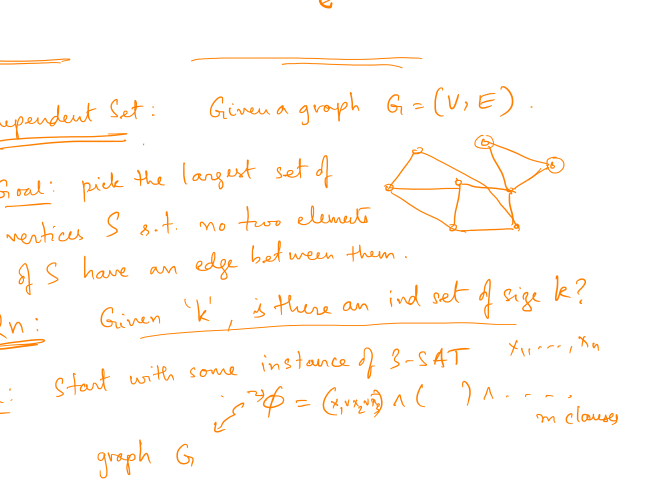 ependent Set : Given a graph G = (V, E) .
Goal : pick the largest set of
vertices S s.t. no two elements
of S have an edge between them .
Qn : Given 'k', is there an ind set of size k?
: Start with some instance of 3-SAT x₁, ..., xₙ
ϕ = (x₁ ∨ x₂ ∨ x̄₃) ∧ ( ) ∧ . - - .
m clauses
graph G